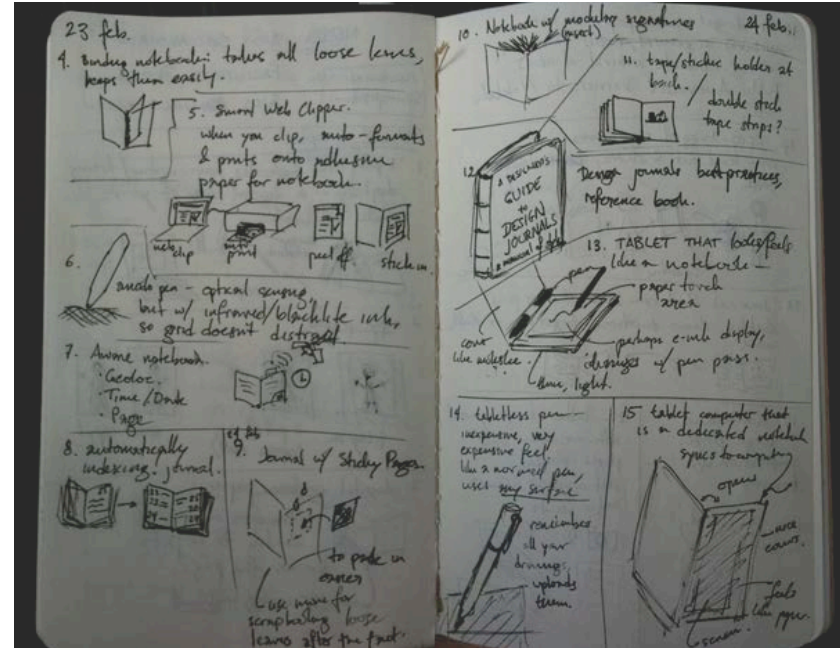 23 feb.
4. Binding notebook: takes all loose leaves,
keeps them easily.
5. Smart Web Clipper.
when you clip, auto-formats
& prints onto adhesive
paper for notebook.
web clip
print
peel off.
stick in.
6.
pen - optical sensing,
but w/ infrared/blacklite ink,
so grid doesn't distract
7. Aware notebook.
· Geoloc.
· Time/Date
· Page
8. automatically
indexing journal.
24 feb
9. Journal w/ Sticky Pages
to paste in
use mine for
scrapbooking loose
leaves after the fact.
10. Notebook w/ modular signatures
(insert)
24 feb.
11. tape/sticker holder at
back. /
double stick
tape strips?
12.
A DESIGNER'S
GUIDE
to
DESIGN
JOURNALS
Design journals best practices,
reference book.
13. TABLET THAT looks/feels
like a notebook —
pen
paper touch
area
cover
like moleskine
perhaps e-ink display,
changes w/ pen pass.
thin, light.
14. tabletless pen —
inexpensive, very
expensive feel.
like a normal pen,
uses any surface
remembers
all your
drawings,
uploads
them.
15 tablet computer that
is a dedicated notebook
syncs to computing
opens
nice
covers.
feels
like paper.
screen.